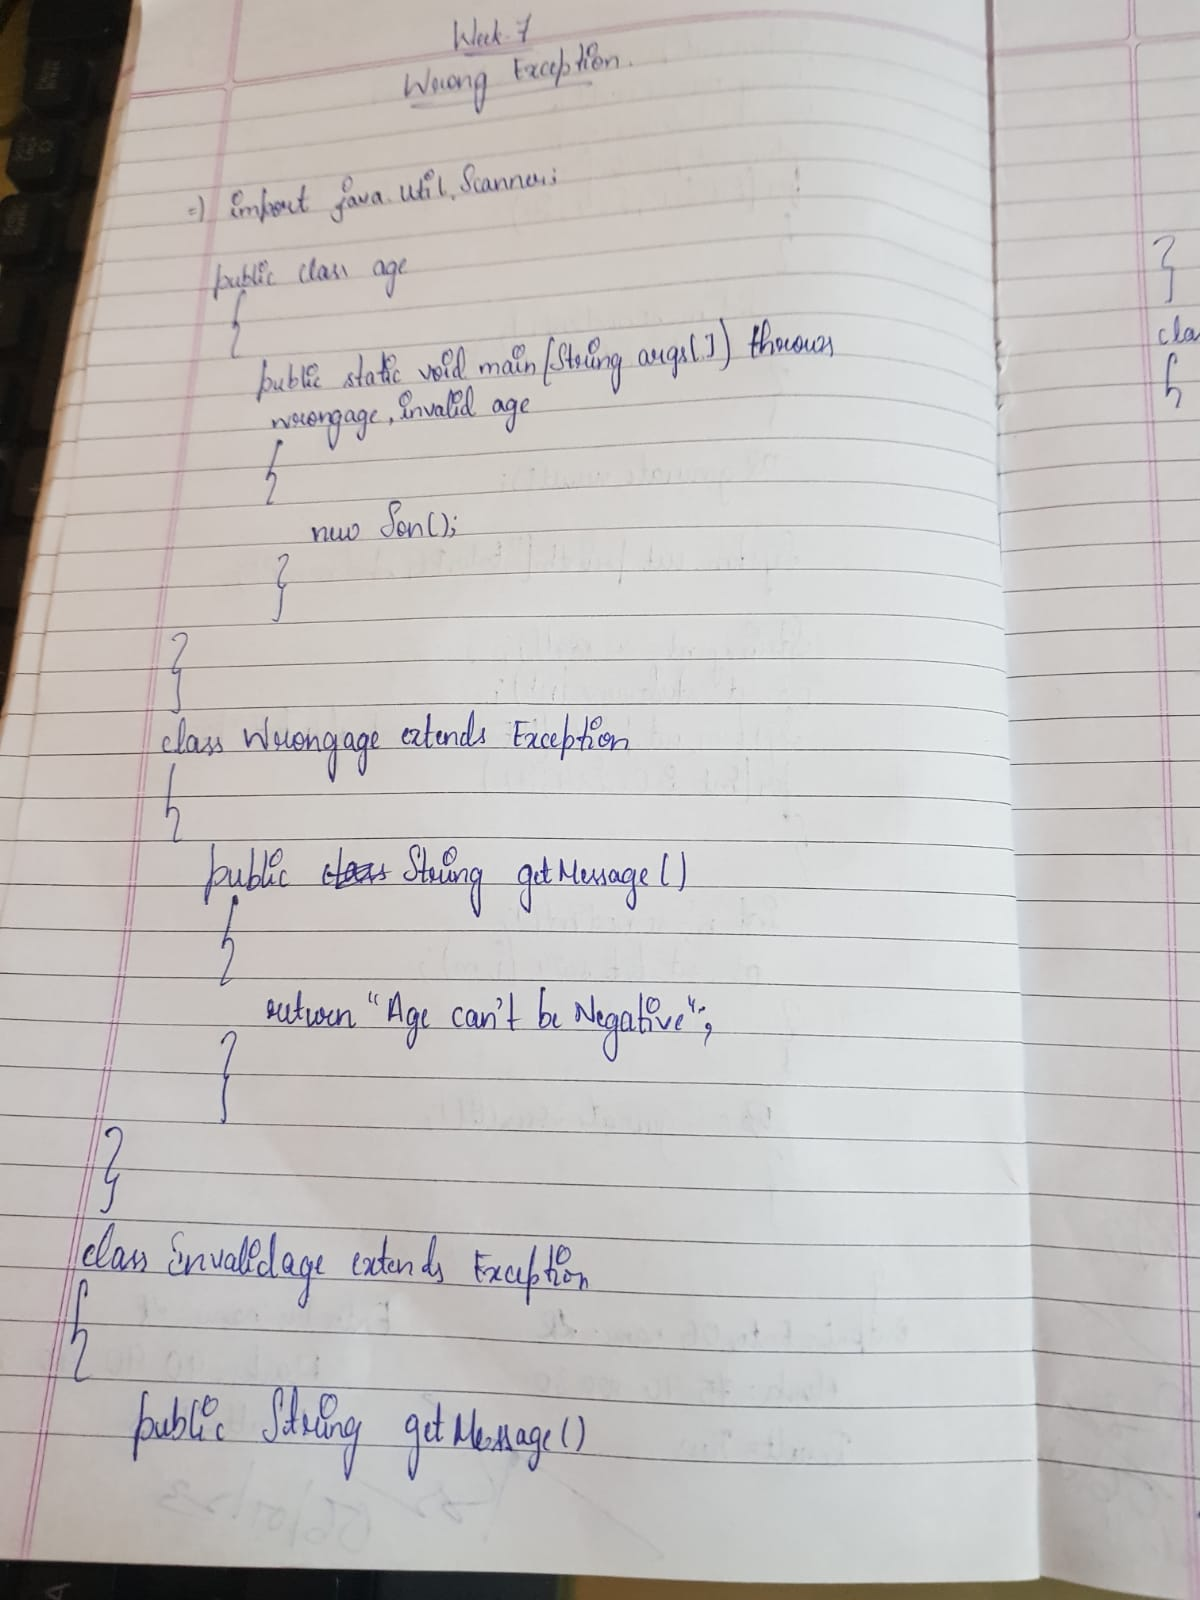 Week-7
Wrong Exception.
=) import java.util.Scanner;
public class age
{
public static void main(String args[]) throws
wrongage, invalid age
{
new Son();
}
}
class Wrongage extends Exception
{
public String getMessage()
{
return "Age can't be Negative";
}
}
class Invalidage extends Exception
{
public String getMessage()
}
cla
{